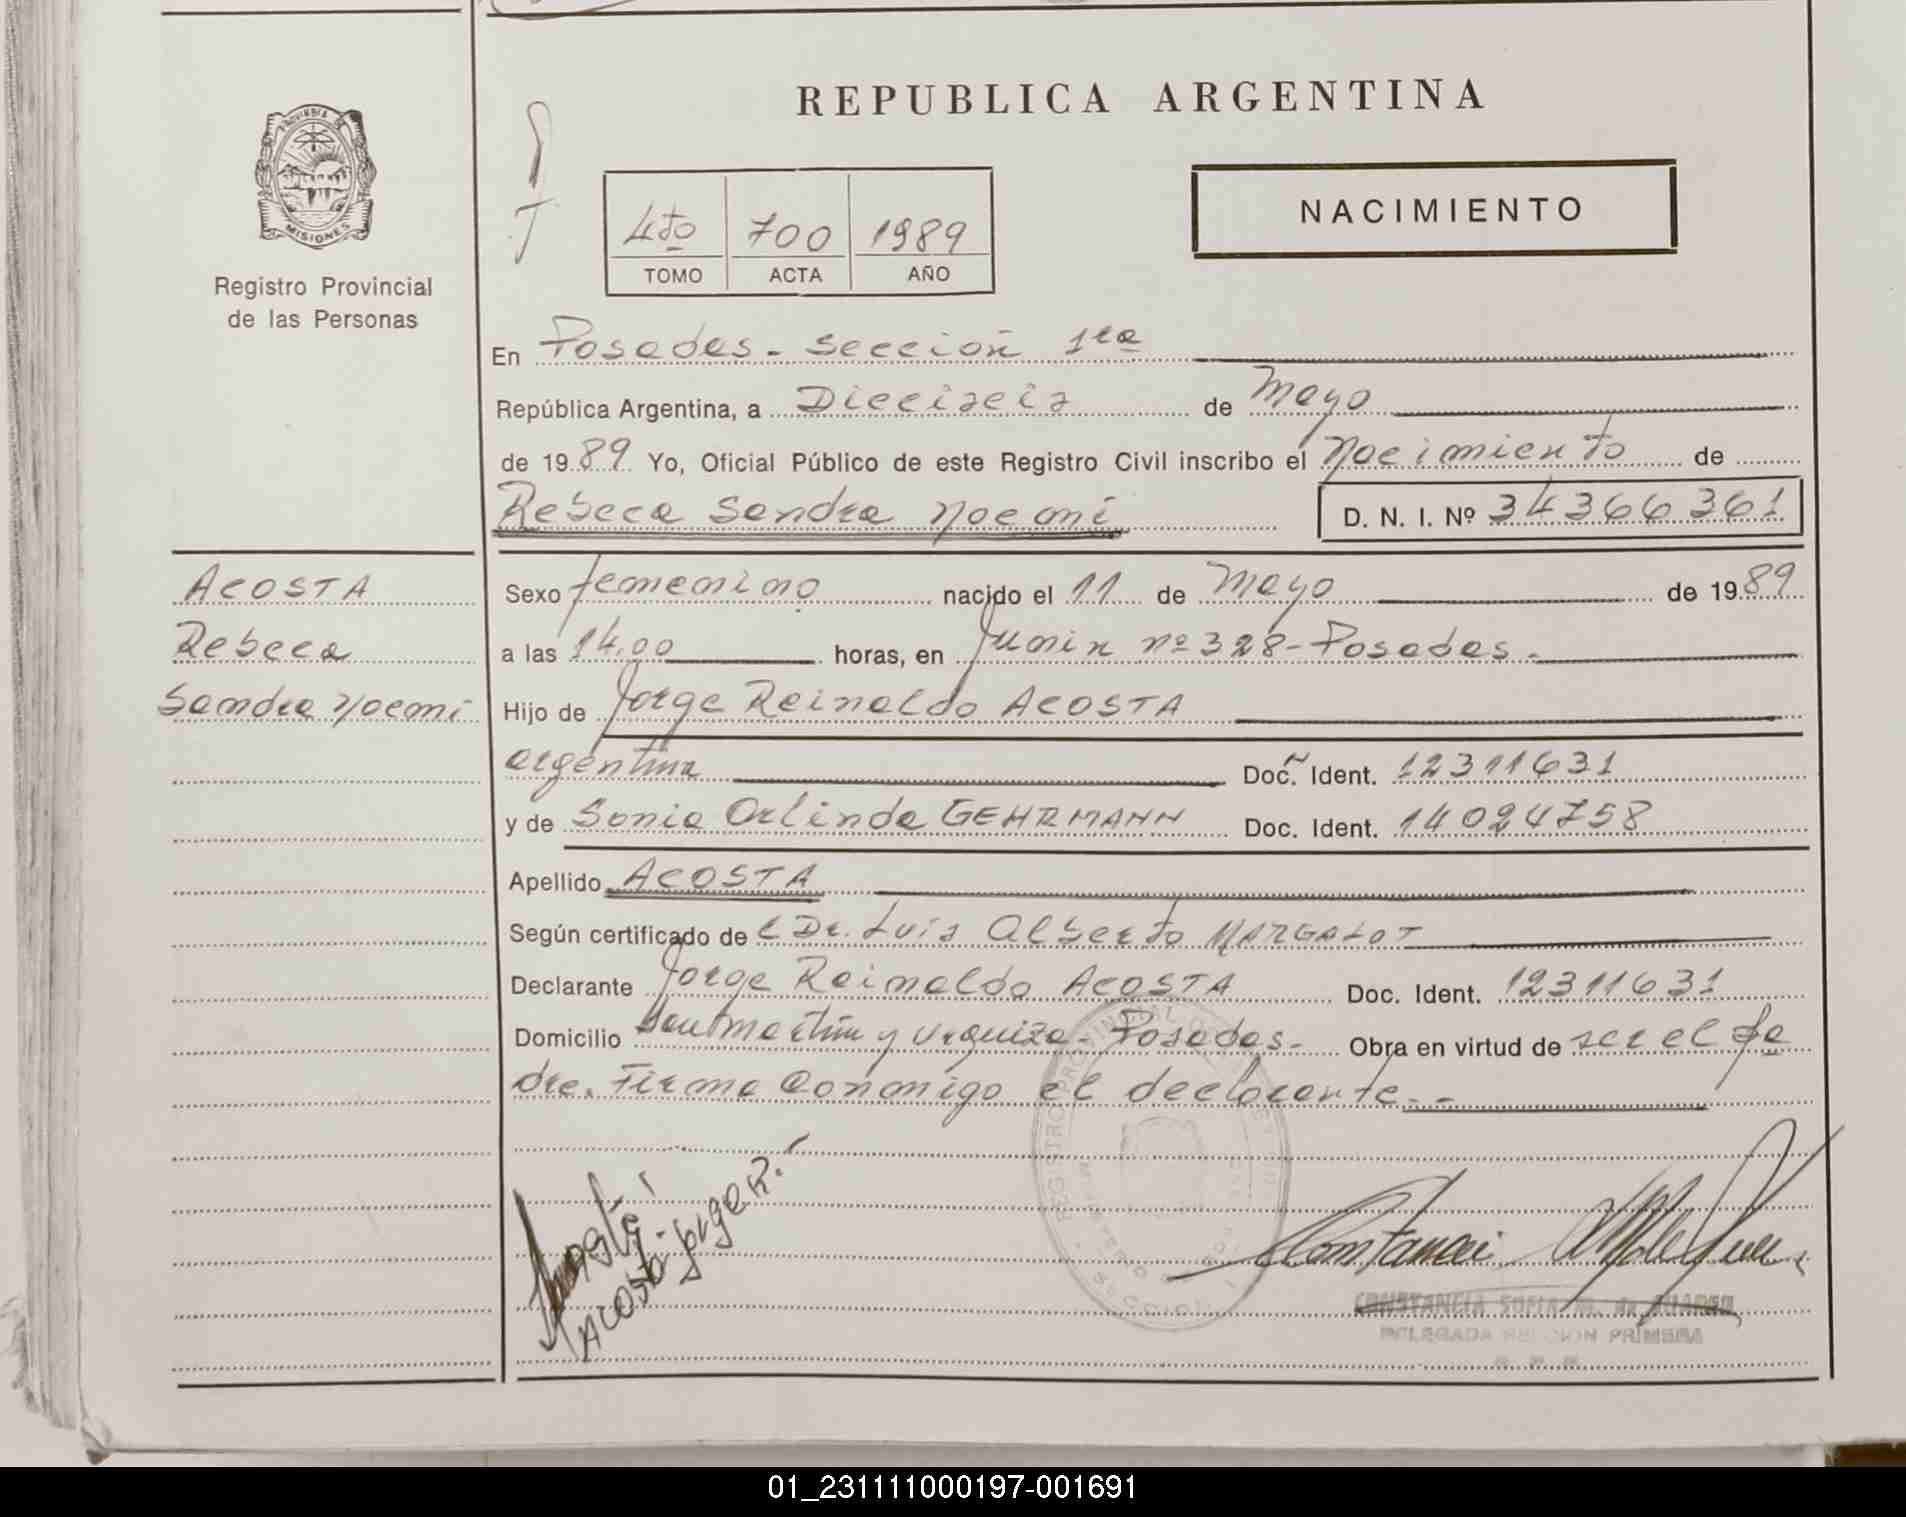 REPUBLICA ARGENTINA
PROVINCIA DE
MISIONES
Registro Provincial
de las Personas
4to 700 1989
TOMO ACTA AÑO
NACIMIENTO
En Posadas - Sección 1ra
República Argentina, a Dieciseis de Mayo
de 1989 Yo, Oficial Público de este Registro Civil inscribo el Nacimiento de
Rebeca Sandra Noemi D. N. I. Nº 34366361
ACOSTA
Rebeca
Sandra Noemi
Sexo femenino nacido el 11 de Mayo de 1989
a las 14,00 horas, en Junin nº 328 - Posadas.
Hijo de Jorge Reinaldo ACOSTA
argentina Doc. Ident. 12311631
y de Sonia Orlinda GEHRMANN Doc. Ident. 14024758
Apellido ACOSTA
Según certificado de l Dr. Luis Alberto MARGALOT
Declarante Jorge Reinaldo ACOSTA Doc. Ident. 12311631
Domicilio San Martín y Urquiza - Posadas - Obra en virtud de ser el pa
dre. Firma conmigo el declarante.--
Acosta Jorge R.
CONSTANCIA SOFIA
DELEGADA SECCION PRIMERA
01_231111000197-001691